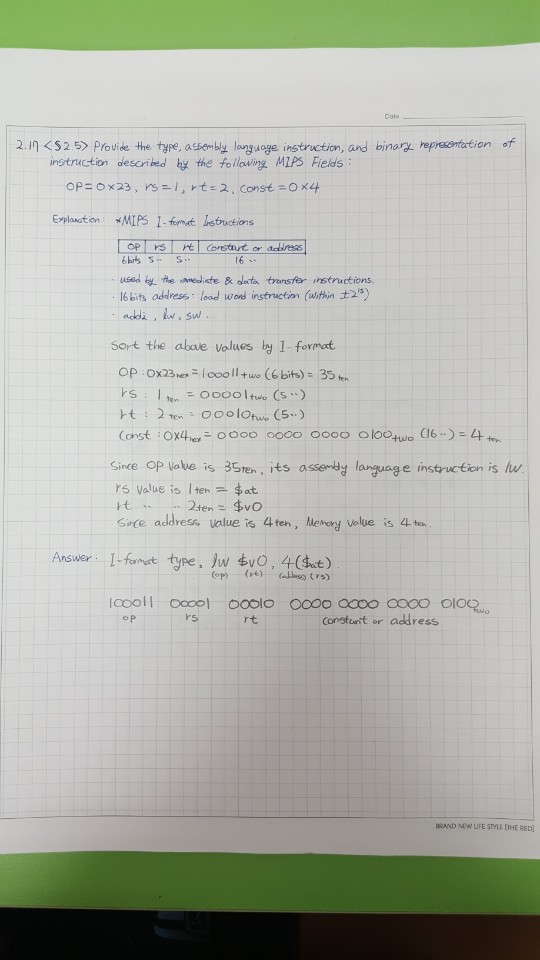 Date
2.17 <§2.5> Provide the type, assembly language instruction, and binary representation of
instruction described by the following MIPS Fields :
OP=0x23, rs=1, rt=2, const=0x4
Explanation : *MIPS I-format Instructions
OP rs rt constant or address
6bits 5〃 5〃 16〃
· used by the immediate & data transfer instructions.
· 16bits address : load word instruction (within ±2¹⁵)
· addi, lw, sw.
Sort the above values by I-format
OP : 0x23hex = 100011two (6bits) = 35ten
rs : 1ten = 00001two (5〃)
rt : 2ten = 00010two (5〃)
Const : 0x4hex = 0000 0000 0000 0100two (16〃) = 4ten
Since OP value is 35ten, its assembly language instruction is lw.
rs value is 1ten = $at
rt 〃 〃 2ten = $v0
Since address value is 4ten, Memory value is 4ten.
Answer : I-format type, lw $v0, 4($at)
(op) (rt) (address) (rs)
100011 00001 00010 0000 0000 0000 0100two
op rs rt constant or address
BRAND NEW LIFE STYLE [THE RED]